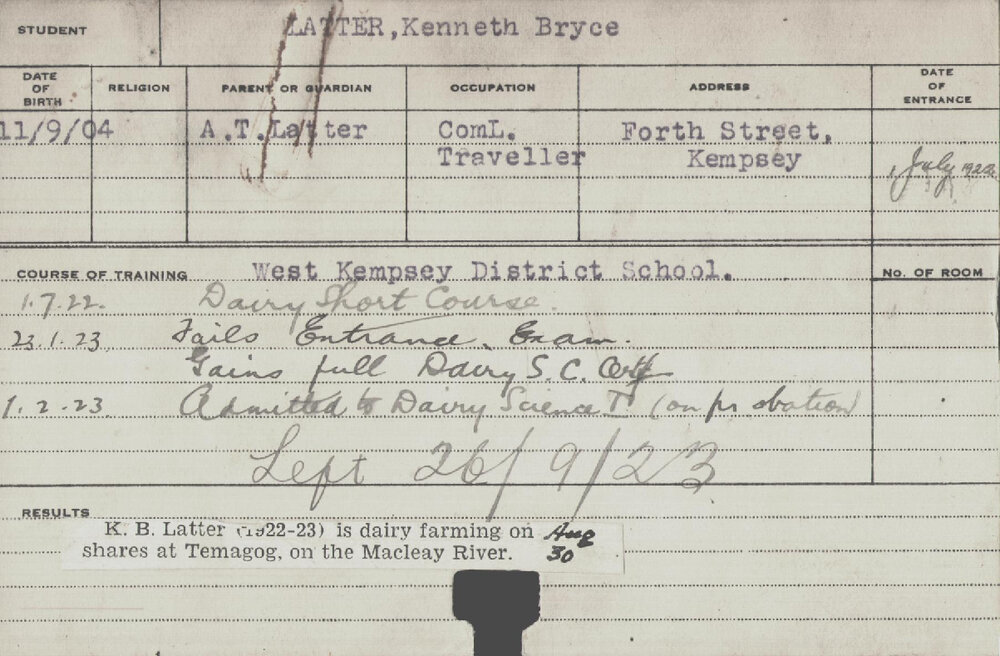 STUDENT LATTER, Kenneth Bryce
DATE OF BIRTH RELIGION PARENT OR GUARDIAN OCCUPATION ADDRESS DATE OF ENTRANCE
11/9/04 A.T. Latter ComL. Forth Street,
Traveller Kempsey July 1922
COURSE OF TRAINING West Kempsey District School. No. OF ROOM
1.7.22. Dairy Short Course.
23.1.23 Fails Entrance Exam.
Gains full Dairy S.C. Cert
1.2.23 Admitted to Dairy Science I (on probation)
Left 26/9/23
RESULTS
K. B. Latter (1922-23) is dairy farming on Aug
shares at Temagog, on the Macleay River. 30